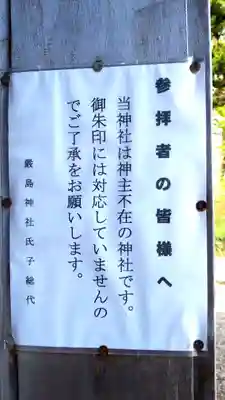 参拝者の皆様へ
当神社は神主不在の神社です。
御朱印には対応していませんの
でご了承をお願いします。
厳島神社氏子総代